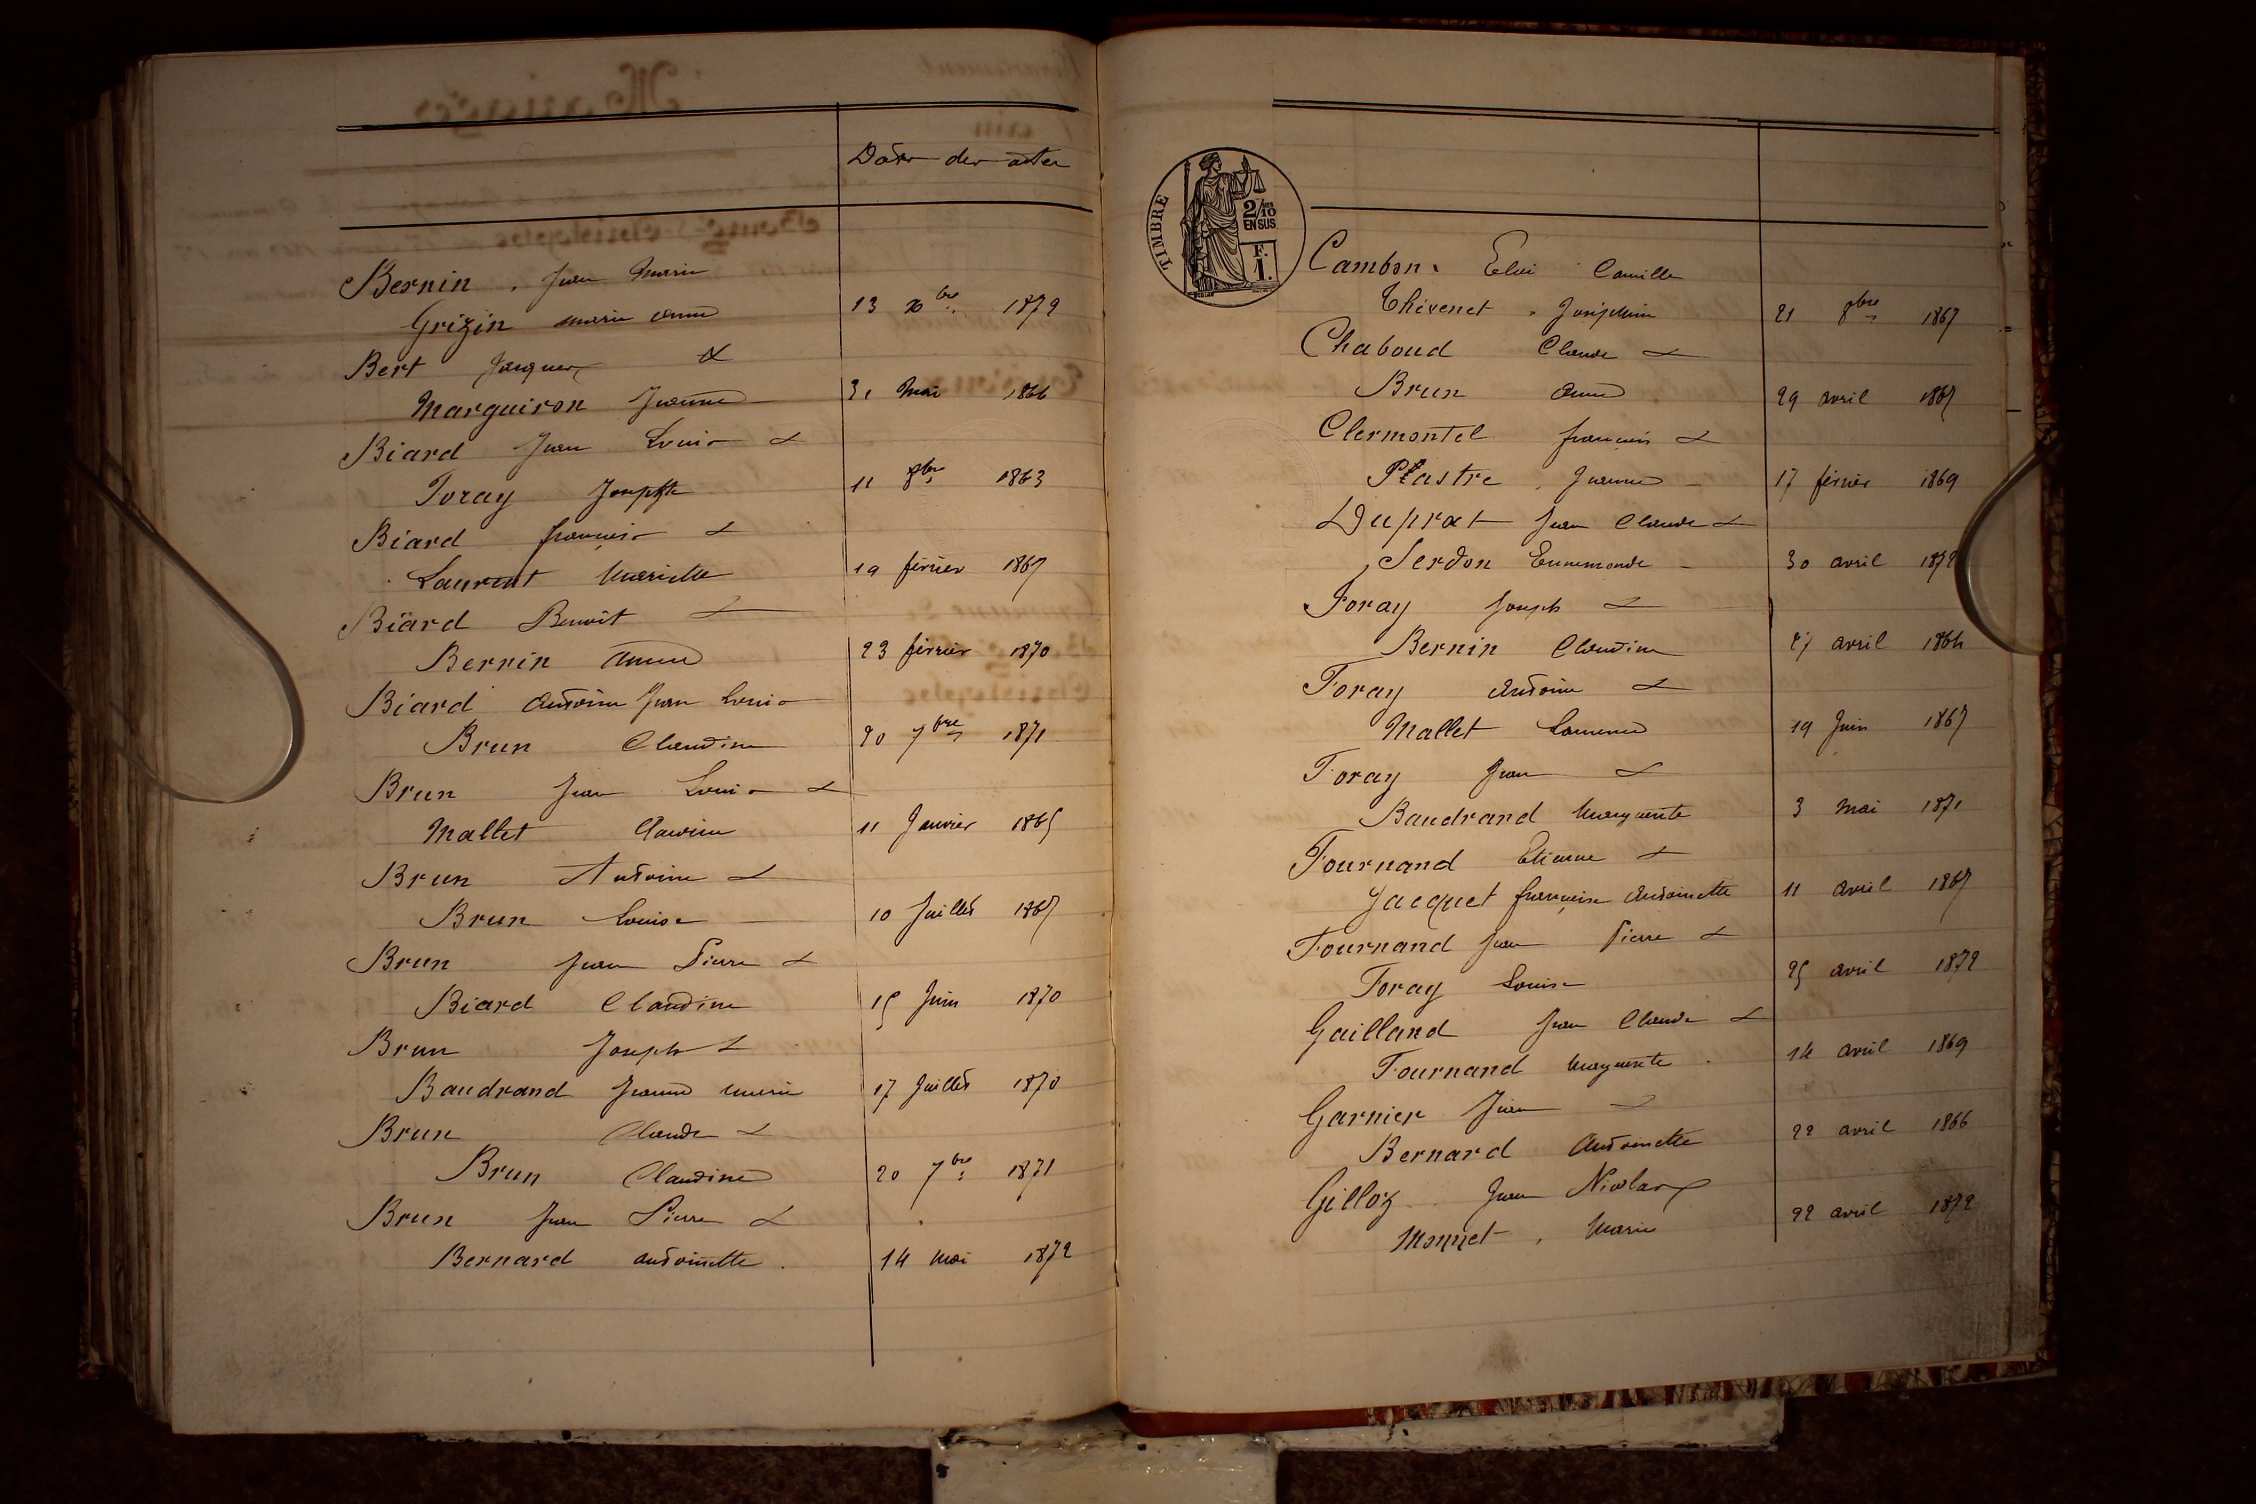 Date des actes
Bernin Jean Marie
Grizin marie anne 13 Xbre 1872
Bert Jacques &
Marguiron Jeanne 31 Mai 1866
Biard Jean Louis &
Foray Josephte 11 8bre 1863
Biard François &
Laurent Mariette 19 février 1867
Biard Benoit &
Bernin Anne 23 février 1870
Biard Antoine Jean Louis
Brun Claudine 20 7bre 1871
Brun Jean Louis &
Mallet Claudine 11 Janvier 1865
Brun Antoine &
Brun Louise 10 Juillet 1867
Brun Jean Pierre &
Biard Claudine 15 Juin 1870
Brun Joseph &
Baudrand Jeanne marie 17 Juillet 1870
Brun Claude &
Brun Claudine 20 7bre 1871
Brun Jean Pierre &
Bernard antoinette 14 mai 1872
TIMBRE
2/10
EN SUS
F.
1.
Cambon Camille
Thivenet Joséphine 21 8bre 1867
Chaboud Claude &
Brun Anne 29 avril 1865
Clermontel françois &
Plastre Jeanne 17 février 1869
Duprat Jean Claude &
Serdon Ennemonde 30 avril 1872
Foray Joseph &
Bernin Claudine 27 avril 1864
Foray Antoine &
Mallet 19 Juin 1867
Foray Jean &
Baudrand Marguerite 3 mai 1871
Fournand Etienne &
Jacquet françoise Antoinette 11 avril 1867
Fournand Jean Pierre &
Foray Louise 25 avril 1872
Gailland Jean Claude &
Fournand Marguerite 14 avril 1869
Garnier Jean &
Bernard Antoinette 22 avril 1866
Gilloz Jean Nicolas &
Monnet Marie 22 avril 1872